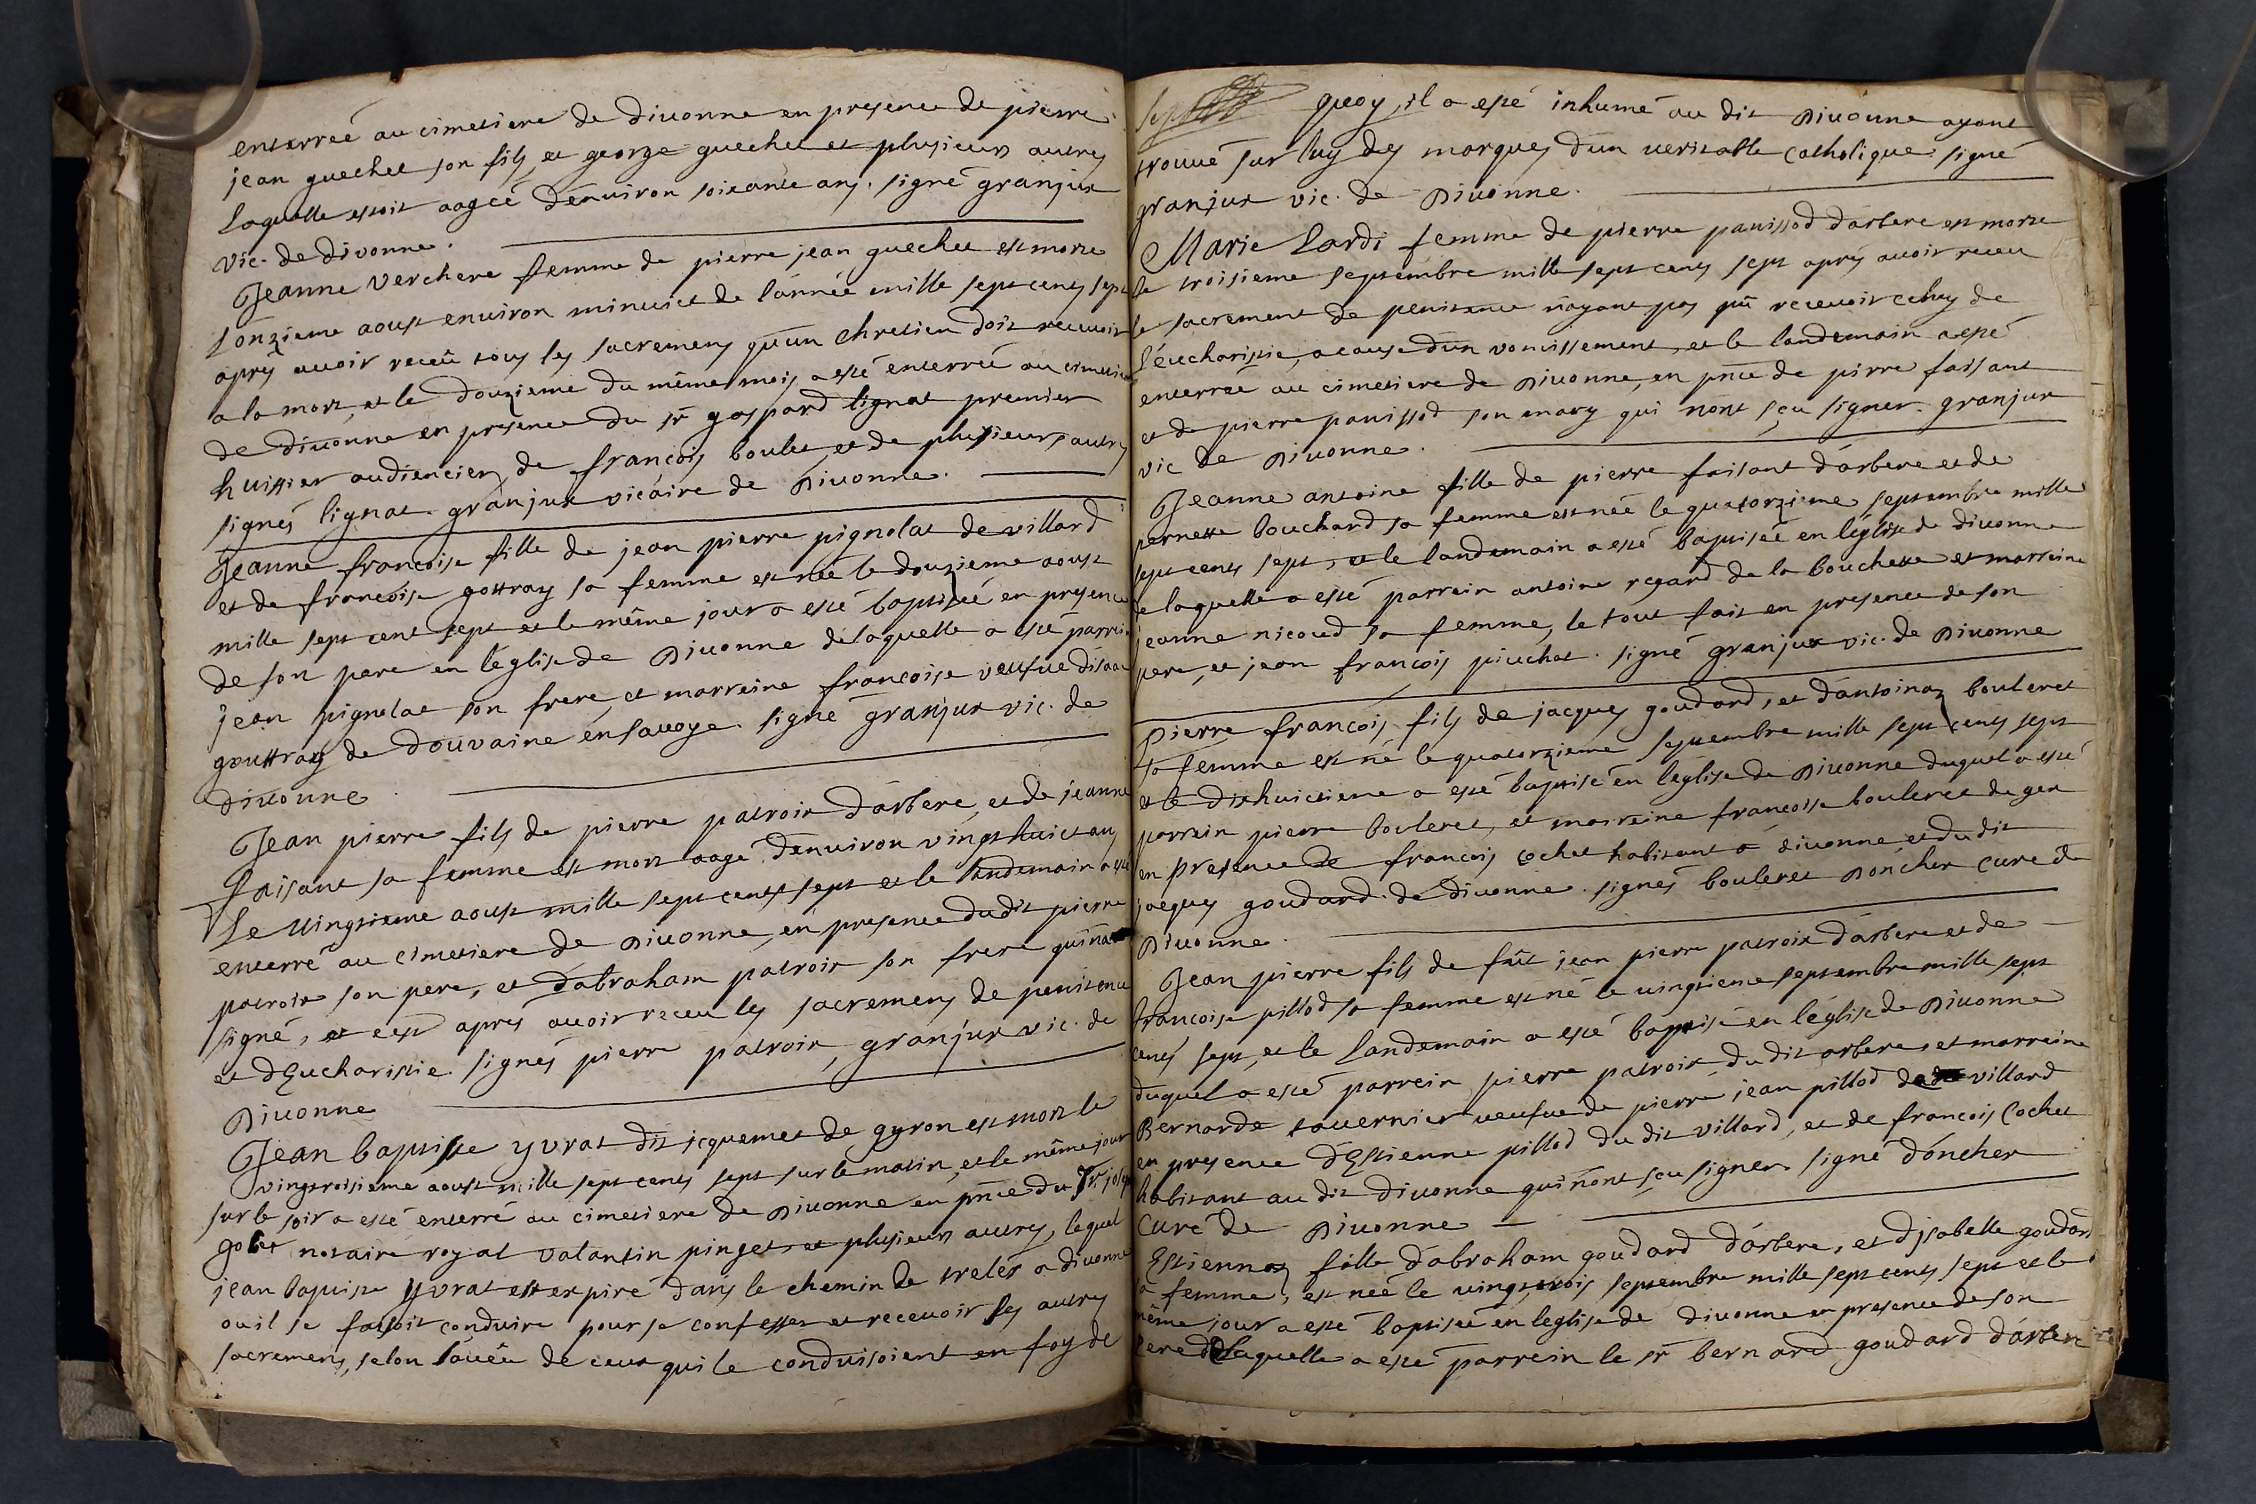 enterreé au cimetiere de divonne en presence de pierre
jean guechet son fils, et george guechet et plusieurs autres
laquelle estoit aageé d'environ soixante ans. signé granjux
vic. de divonne.
Jeanne verchere femme de pierre jean guechet est morte
l'onzieme aoust environ minuict de l'année mille sept cents sept
apres avoir receu tous les sacremens qu'un chretien doit recevoir
a la mort, et le douzieme du même mois a esté enterreé au cimetiere
de divonne en presence du sr gaspard lignat premier
huissier audiencier, de françois boulet, et de plusieurs autres
signés lignat. granjux vicaire de Divonne.
Jeanne francoise fille de jean pierre pignolat de villard
et de francoise gottray sa femme est née le douzieme aoust
mille sept cent sept et le même jour a esté baptiseé en presence
de son pere en l'église de Divonne de laquelle a esté parrein
jean pignolat son frere, et marreine francoise veufve d'isaac
gouttray de douvaine en savoye. signé granjux vic. de
divonne.
Jean pierre fils de pierre patroix d'arbere, et de jeanne
faisant sa femme est mort aagé d'environ vingt huict ans
Le vingtieme aoust mille sept cents sept et le landemain a esté
enterré au cimetiere de Divonne, en presence dudit pierre
patroix son pere, et d'abraham patroix son frere qui n'a
signé, et c'est apres avoir receu les sacremens de penitence
et d'Eucharistie. signés pierre patroix, granjux vic. de
Divonne
Jean baptiste yvrat dit jcquemet de gyron est mort le
vingtroisieme aoust mille sept cents sept sur le matin, et le même jour
sur le soir a esté enterré au cimetiere de Divonne en pnce du Sr
golet notaire royal valantin pinget et plusieurs autres, lequel
jean baptiste yvrat est expiré dans le chemin de trelés a divonne
ou il se faisoit conduire pour se confesser et recevoir les autres
sacremens, selon l'áveu de ceux qui le conduisoient en foy de
quoy, il a esté inhumé au dit Divonne ayant
trouvé sur luy des marques d'un veritable catholique. signé
granjux vic. de Divonne.
Marie Lardi femme de pierre panissod d'arbere est morte
le troisieme septembre mille sept cents sept apres avoir receu
le sacrement de penitence n'ayant pas pû recevoir celuy de
l'eucharistie, a cause d'un vomissement, et le landemain a esté
enterreé au cimetiere de Divonne, en pnce de pirre faisant
et de pierre panissod son mary qui n'ont sçu signer. granjux
vic de Divonne.
Jeanne antoine fille de pierre faisant d'arbere et de
pernette bouchard sa femme est née le quatorzieme septembre mille
sept cents sept, et le landemain a esté baptiseé en l'église de divonne
de laquelle a esté parrein antoine regard de la bouchette et marreine
jeanne nicoud sa femme, le tout fait en presence de son
pere, et jean françois piuchat. signé granjux vic. de Divonne
Pierre françois fils de jacques goudard, et d'antoinaz bouleret
sa femme est né le quatorzieme septembre mille sept cents sept
et le dixhuictieme a esté baptisé en l'église de Divonne duquel a esté
parrein pierre bouleret, et marreine francoise bouleret de gex
en presence de françois cochet habitant a divonne, et dudit
jacques goudard de divonne. signés bouleret Doncher curé de
Divonne.
Jean pierre fils de fût jean pierre patroix d'arbere et de
francoise pillod sa femme est né le vingtieme septembre mille sept
cents sept, et le landemain a esté baptisé en l'église de Divonne
duquel a esté parrein pierre patroix du dit arbere, et marreine
Bernarde tavernier veufve de pierre jean pillod de villard
en presence d'Estienne pillod du dit villard, et de françois Cochet
habitant au dit divonne qui n'ont sçu signer. signé d'oncher
curé de Divonne
Estiennaz fille d'abraham goudard d'arbere, et d'jsabelle goudard
sa femme, est née le vingttrois septembre mille sept cents sept et le
même jour a esté baptisée en l'eglise de divonne en presence de son
pere de laquelle a esté parrein le sr bernard goudard d'arbere